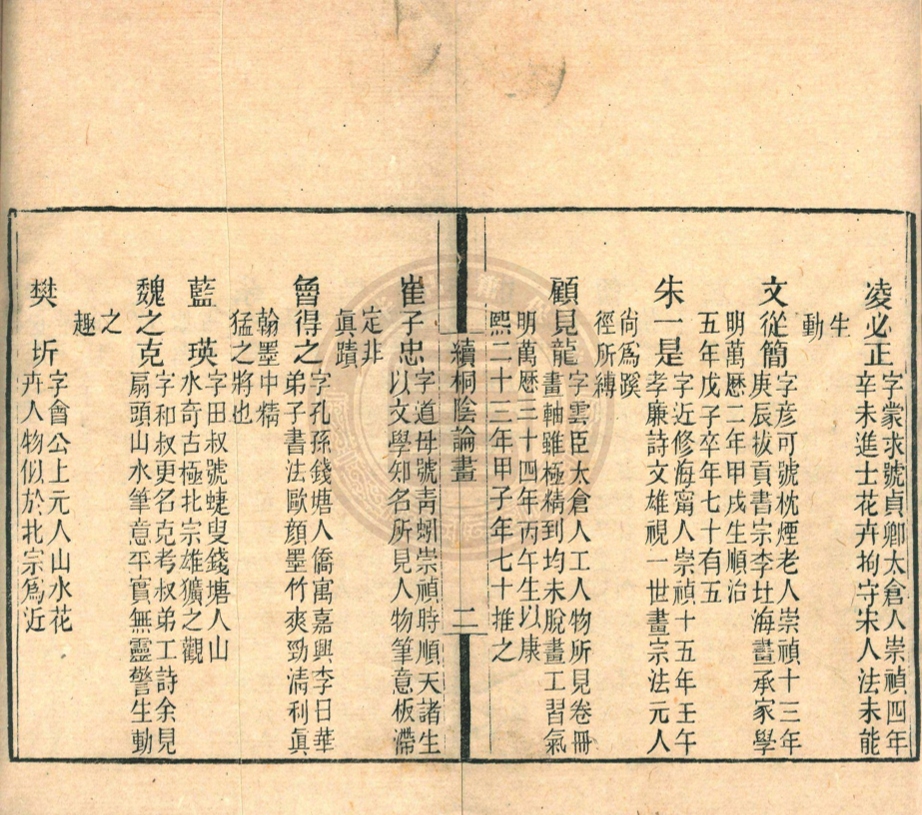 凌必正
字蒙求號貞卿太倉人崇禎四年
辛未進士花卉拘守宋人法未能
生
動
文從簡
字彥可號枕煙老人崇禎十三年
庚辰拔貢書宗李北海畫承家學
明萬厯二年甲戌生順治
五年戊子卒年七十有五
朱一是
字近修海甯人崇禎十五年壬午
孝廉詩文雄視一世畫宗法元人
尙爲蹊
徑所縛
顧見龍
字雲臣太倉人工人物所見卷冊
畫軸雖極精到均未脫畫工習氣
明萬厯三十四年丙午生以康
熙二十三年甲子年七十推之
續桐陰論畫
二
崔子忠
字道母號靑蚓崇禎時順天諸生
以文學知名所見人物筆意板滯
定非
眞蹟
魯得之
字孔孫錢塘人僑寓嘉興李日華
弟子書法歐顏墨竹爽勁清利眞
翰墨中精
猛之將也
藍瑛
字田叔號蜨叟錢塘人山
水奇古極北宗雄獷之觀
魏之克
字和叔更名克考叔弟工詩余見
扇頭山水筆意平實無靈警生動
之
趣
樊圻
字會公上元人山水花
卉人物似於北宗爲近